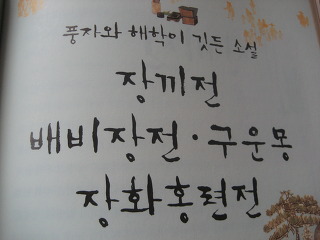 풍자와 해학이 깃든 소설
장끼전
배비장전·구운몽
장화홍련전